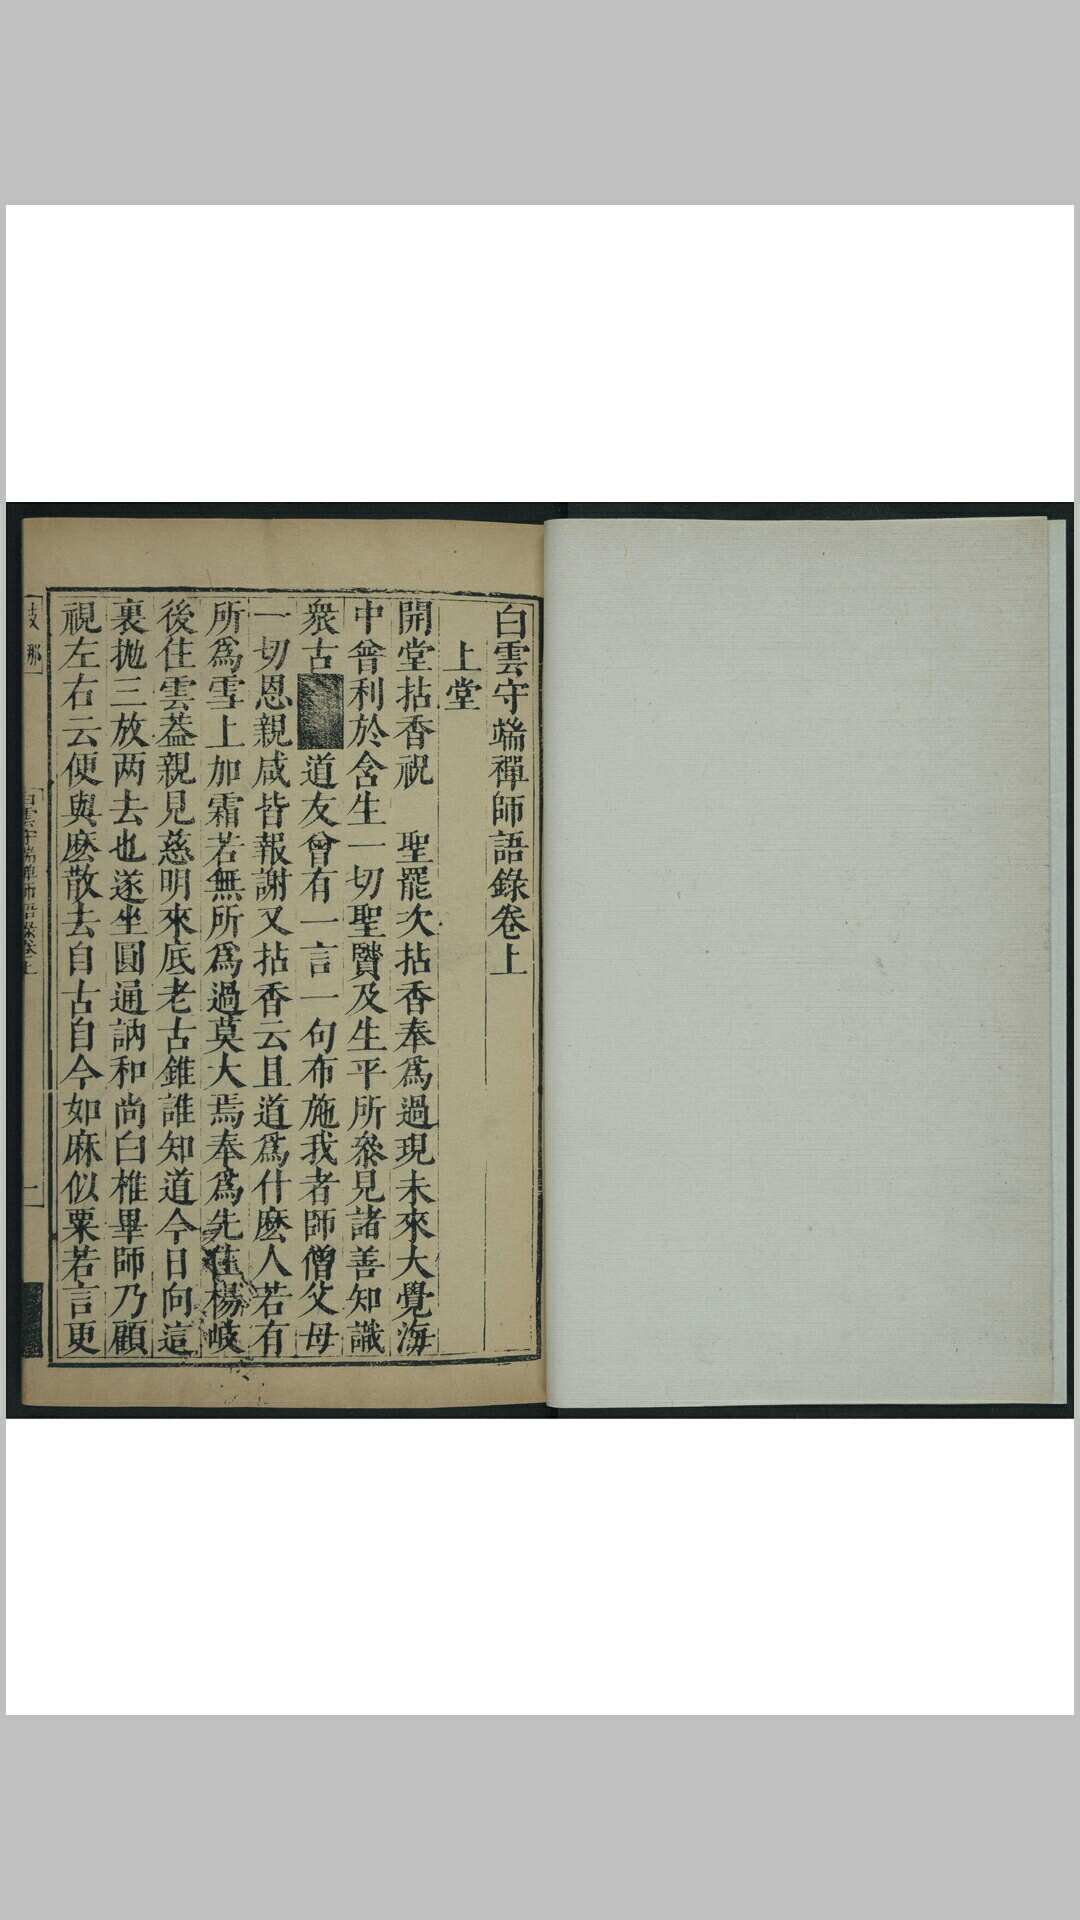 白雲守端禪師語錄卷上
上堂
開堂拈香祝　聖罷次拈香奉爲過現未來大覺海
中曾利於含生一切聖賢及生平所叅見諸善知識
衆古　道友曾有一言一句布施我者師僧父母
一切恩親咸皆報謝又拈香云且道爲什麽人若有
所爲雪上加霜若無所爲過莫大焉奉爲先住楊岐
後住雲葢親見慈明來底老古錐誰知道今日向這
裏抛三放两去也遂坐圓通訥和尚白椎畢師乃顧
視左右云便與麽散去自古自今如麻似粟若言更
白雲守端禪師語錄卷上
一